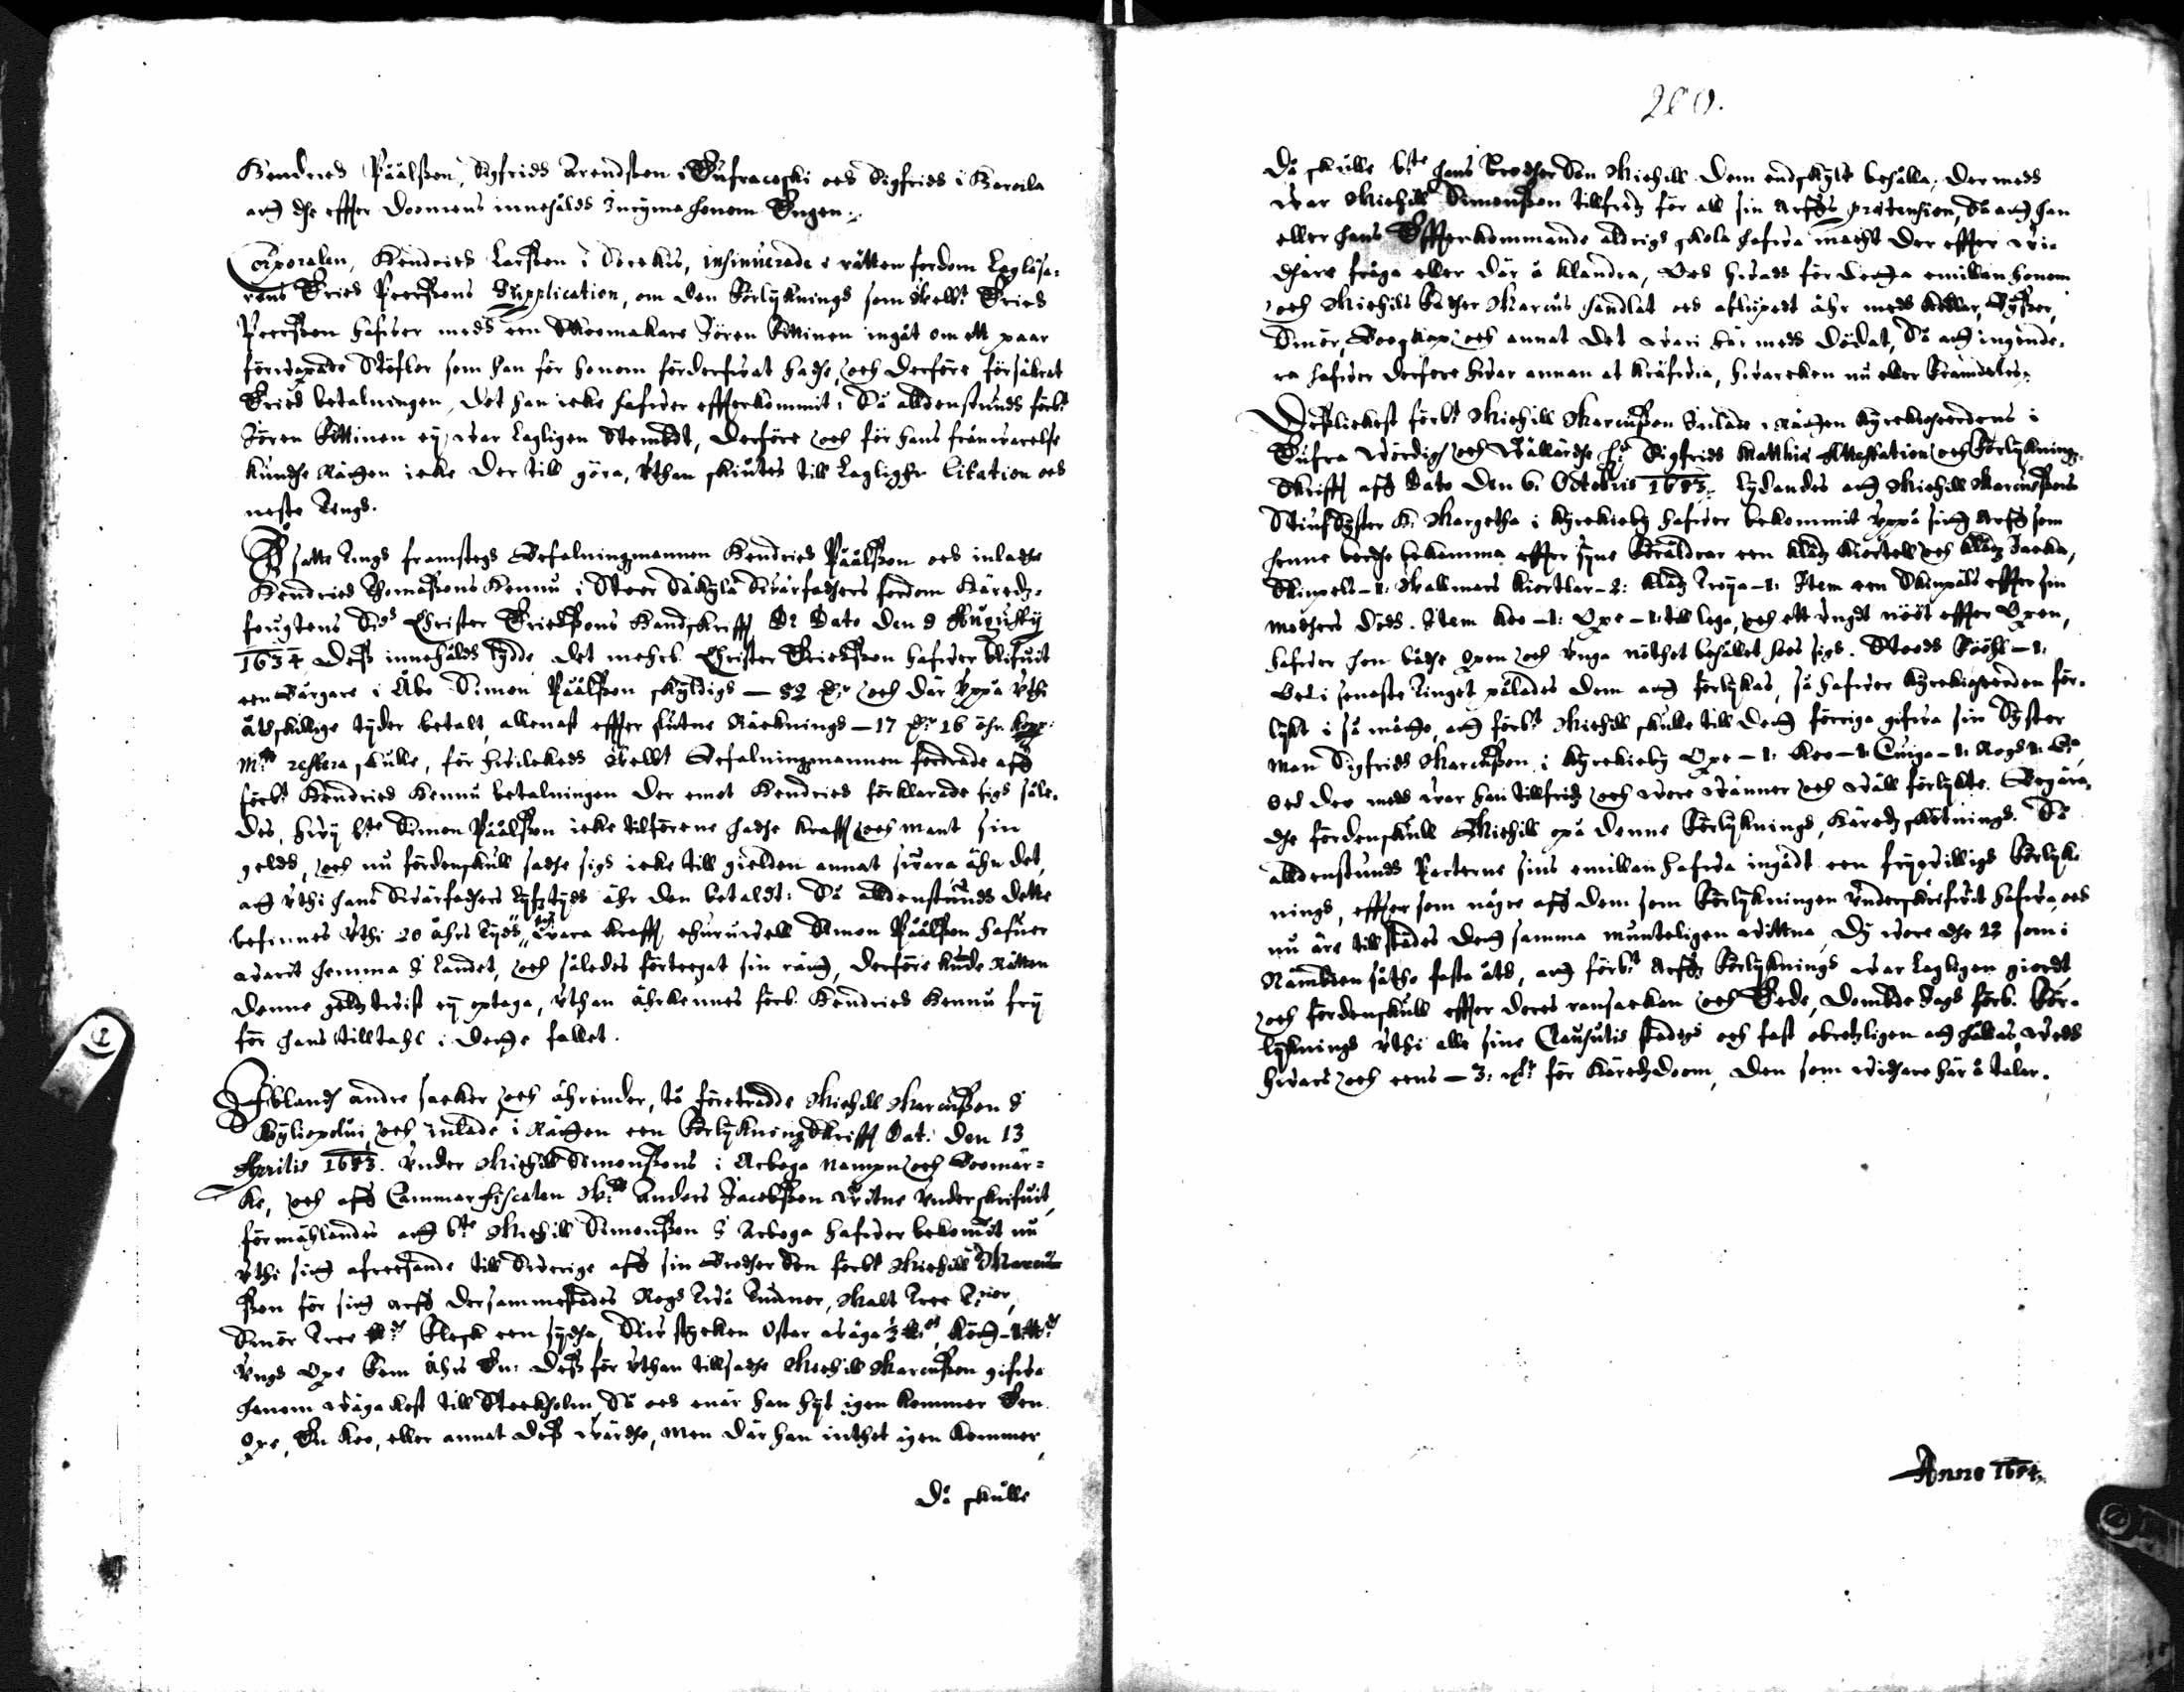 Hendrich Påålßon, Sigfridh Arendßon i Eufracoski och Sigfridh i Karoila
att the effter doomens innehåldh inryma honom Engen.
Corporalen, Hendrich Larßon i Sorckis, insinuerade i rätten fordom Lagläsa-
rens Erich Peerßons Supplication, om den förlykningh som Welb:t Erich
Peerßon hafwer medh een Skoomakare Jören Kittinen ingåt om ett paar
förwapade Stöflor som han för honom förderfwat hadhe, och derföre försäkrat
Erich betalningen, det han icke hafwer effterkommit, Så alldenstundh förb:t
Jören Kittinen ey war lagligen Stembdt, derföre och för hans frånwarelse
kundhe Rätten icke der till göra, Uthan skiutes till Lagligh Citation och
neste Tingh.
På satte Tingh framstegh Befalningzmannen Hendrich Påålßon och inladhe
Hendrich Thomaßons Kennu i Stoor Säkylä Swärfadhers fordom Häredz-
fougtens S:
 Christer Erichßons Handskrifft De Dato den 8 Augusty
1634 deß innehåldh lydde det mehrb: Christer Erichßon hafwer blifwit
een Borgare i Åbo Simon Påålßon skyldigh – 82 D:r och där Uppå Uthi
åthskillige tyder betalt, allenast effter slutne Räckningh – 17 D:r 16 öhr Kopp:
M:t restera skulle, för hwilckedh Welb:t Befalningzmannen fordrade aff
förb:t Hendrich Kennu betalningen der emot Hendrich förklarade sigh såle-
des, hwy b:te Simon Påålßon icke tilförene hadhe krafft och mant sin
geldh, och nu fördenskull sadhe sigh icke till gielden annat swara ähn det,
att Uthi hans Swärfadhers lyfztydh ähr den betaldt: Så alldenstundh dette
befinnes Uthi 20 åhrs tydh wara krafft ehuruwell Simon Påålßon hafuer
warit hemma i landet, och således förteegat sin rätt, derföre kunde Rätten
denne geldztwist ey optaga, Uthan åhrkennes förb: Hendrich Kennu fry
för hans tilltahl i dette fallet.
Iblandh andre saaker och ährender, tå företrädde Michill Marcußon i
Kyliopolui, och inlade i Rätten een förlykningz Skrifft Dat: den 13
Aprilis 1653. Under Michill Simonßons i Arboga nampn och Boomär-
ke, och aff Cammarfiscalen W:t Anders Jacobßon witne Underskrifuit,
förmählandes att b:te Michill Simonßon i Arboga hafwer bekommit nu
Uthi sitt afreesande till Swerige aff sin Brodher Son förb:t Michill Marcu-
ßon för sitt arff dersammestädes Rogh Twå Tunnor, Malt Tree T:nor,
Smör Tree
 Flesk een sydha, Siw stycken Ostar wäga ½
Ungh Oxe fem åhrs En: deß för Uthan tillsadhe Michill Marcußon gifwa
honom wäga kost till Stockholm, Så och enär han hyt igen kommer Een
Oxe, En Koo, eller annat deß wärdhe, men där han inthet igen kommer,
då skulle
200.
då skulle b:te hans Brodher Son Michill dem endskylt behålla, der medh
war Michill Simonßon tillfredz för all sin Arffz prætension, Så att han
eller hans Effterkommande aldrigh skola hafwa macht der effter wi-
dhare fråga eller där å klandra, och hwadh för detta emillan honom
och Michils Fadher Marcus handlat och aflupet ähr medh
 Fysker,
Smör, Boogskap och annat det wari här medh dödat, Så att ingende-
ra hafwer derföre hwar annan at kräfwia, hwarcken nu eller framdeles.
Deßliekest förb:t Michill Marcußon Inlade i Rätten Kyrckioherdens i
Eufra wördigh och Wällärdhe H:r Sigfridh Matthiæ Attestation och förlykningz-
Skrifft aff Dato den 6. Octobris 1653. lydandes att Michill Marcußons
Stiufsyster H: Margetha i Kyrckieby hafwer bekommit Uppå sitt arff som
henne bordhe bekomma effter syne Föräldrar een klädz kiortell och klädz Jacka,
Skinpels – 1: Walmars kiortlar – 2: klädz Tröya – 1: Item een Skinpäls effter sin
modhers dödh. Item Koo – 1: Oxe – 1: till lego, och ett Ungt nööt effter Oxen,
hafwer hon både Oxen och Unga nöthet behållet hoos sigh. Stoodh Fööhl – 1:
Och i seneste Tinget pålades dem att förlykas, så hafwer Kyrckioherden för-
lykt i så måtto, att förb:t Michill skulle till dett förriga gifwa sin Syster
man Sigfridh Marcußon i Kyrckieby Oxe – 1: Koo – 1: Quiga – 1: Rogh 1:
och der medh war han tillfridz och wore wänner och wäll förlykte. Begära-
dhe fördenskull Michill opå denne förlykningh, Häredz skötningh. Så
alldenstundh Parterne sins emillan hafwa ingådt een fryewilligh förlyk-
ningh, effter som någre aff dem som förlykningen Underskrifwit hafwa, och
nu äre tillstädes dett samma munteligen wittna, dy wore dhe 12 som i
Nämbden sätho fasta åth, att förb:t Arffz förlykningh war lagligen giordt
och fördenskull effter deres ransackan och Eede, dömbde iagh förb: för-
lykningh Uthi alle sine Clausulis stadigh och fast obrotzligen att hållas, wedh
hwars och eens – 3: m:r för häredzdoom, den som widhare här å talar.
Anno 1654.